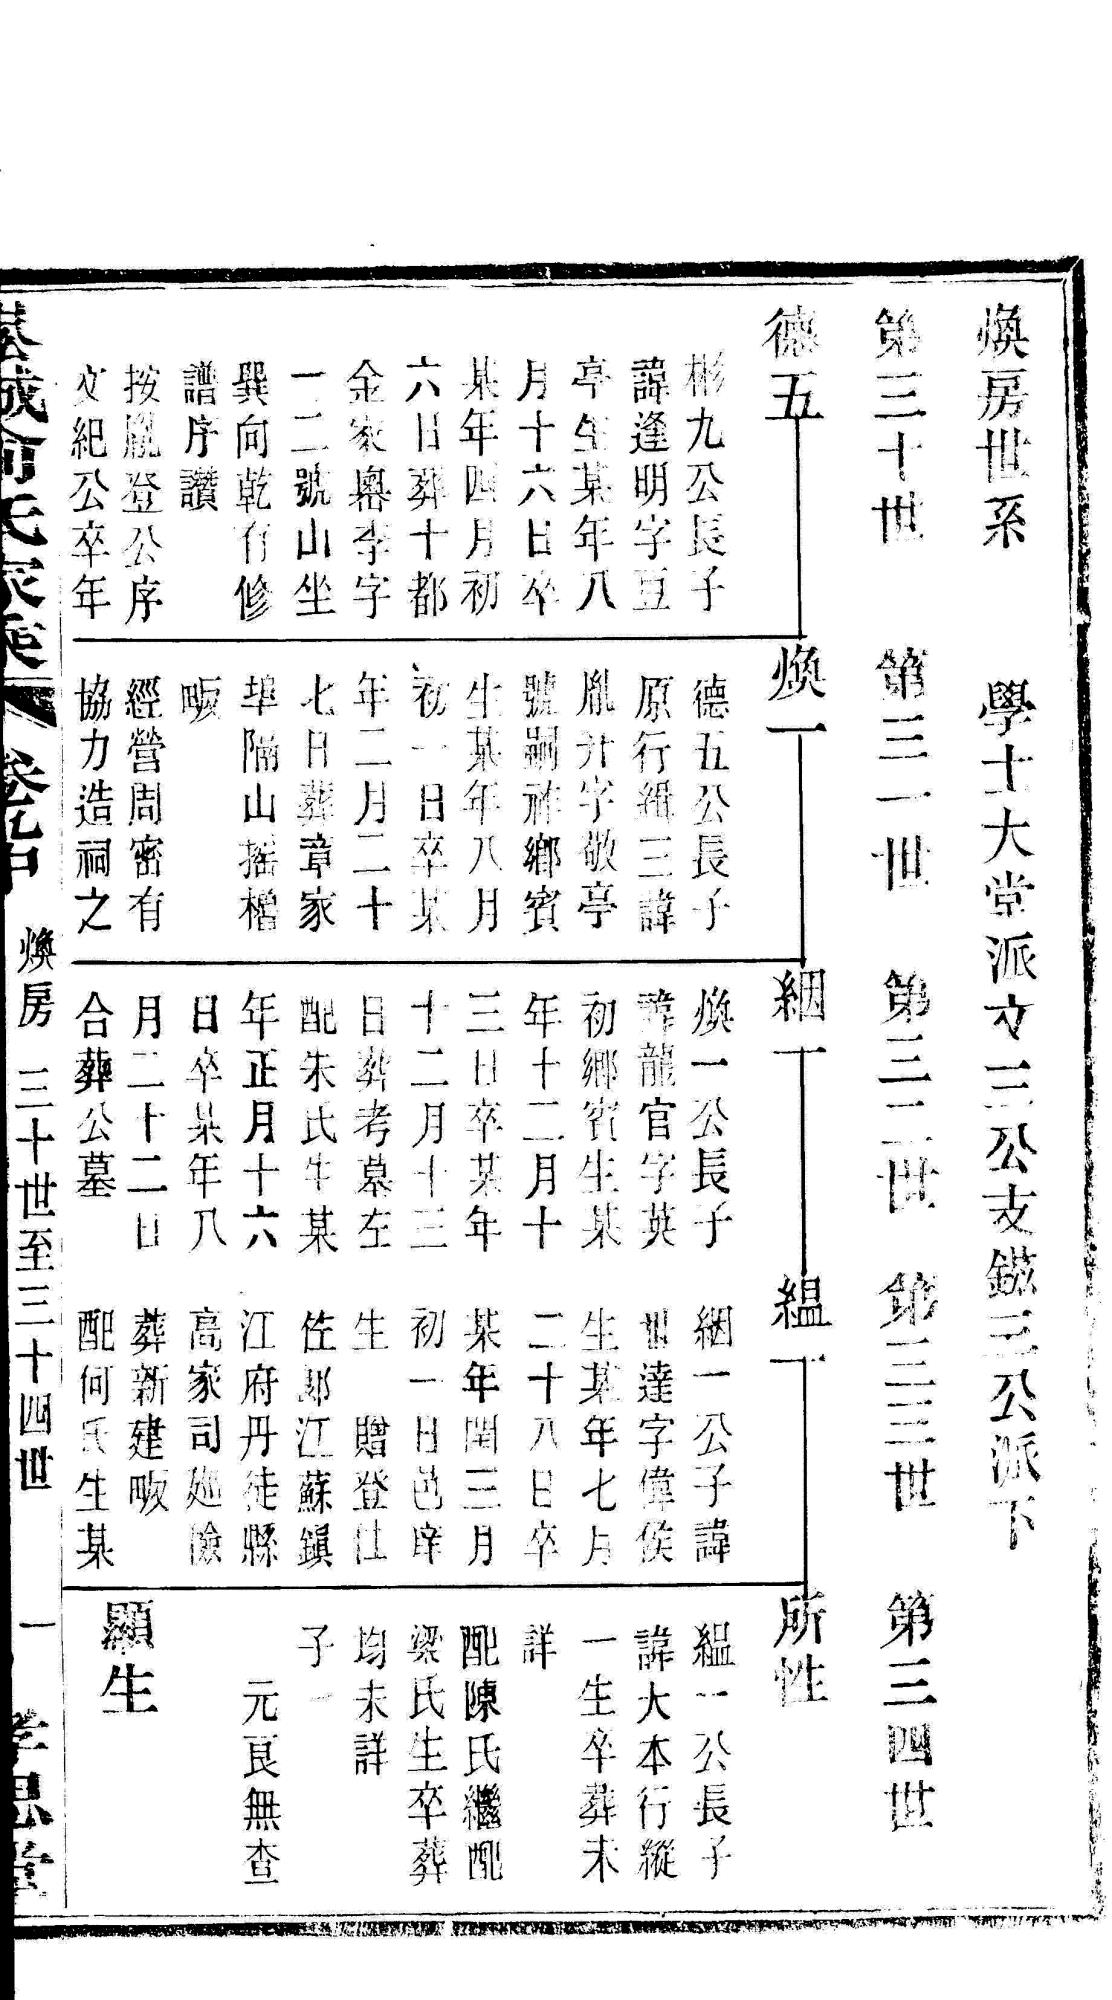 煥房世系　學士大堂派文三公支鎡三公派下
第三十世　第三一世　第三二世　第三三世　第三四世
德五
彬九公長子
諱逢明字亘
亭生某年八
月十六日卒
某年四月初
六日葬十都
金家㘭李字
一二號山坐
巽向乾有修
譜序讚
按胤登公序
文紀公卒年
煥一
德五公長子
原行緝三諱
胤升字敬亭
號嗣祚鄉賓
生某年八月
初一日卒某
年二月二十
七日葬章家
埠隔山搖櫓
畈
經營周密有
協力造祠之
絪一
煥一公長子
諱龍官字英
初鄉賓生某
年十二月十
三日卒某年
十二月十三
日葬考墓左
配朱氏生某
年正月十六
日卒某年八
月二十二日
合葬公墓
緼一
絪一公子諱
世達字偉侯
生某年七月
二十八日卒
某年閏三月
初一日邑庠
生　贈登仕
佐郎江蘇鎭
江府丹徒縣
高家司廵檢
葬新建畈
配何氏生某
所性
緼一公長子
諱大本行縱
一生卒葬未
詳
配陳氏繼配
梁氏生卒葬
均未詳
子一
元良無查
顯生
城俞氏家乘　卷九中　煥房　三十世至三十四世　一　孝思堂